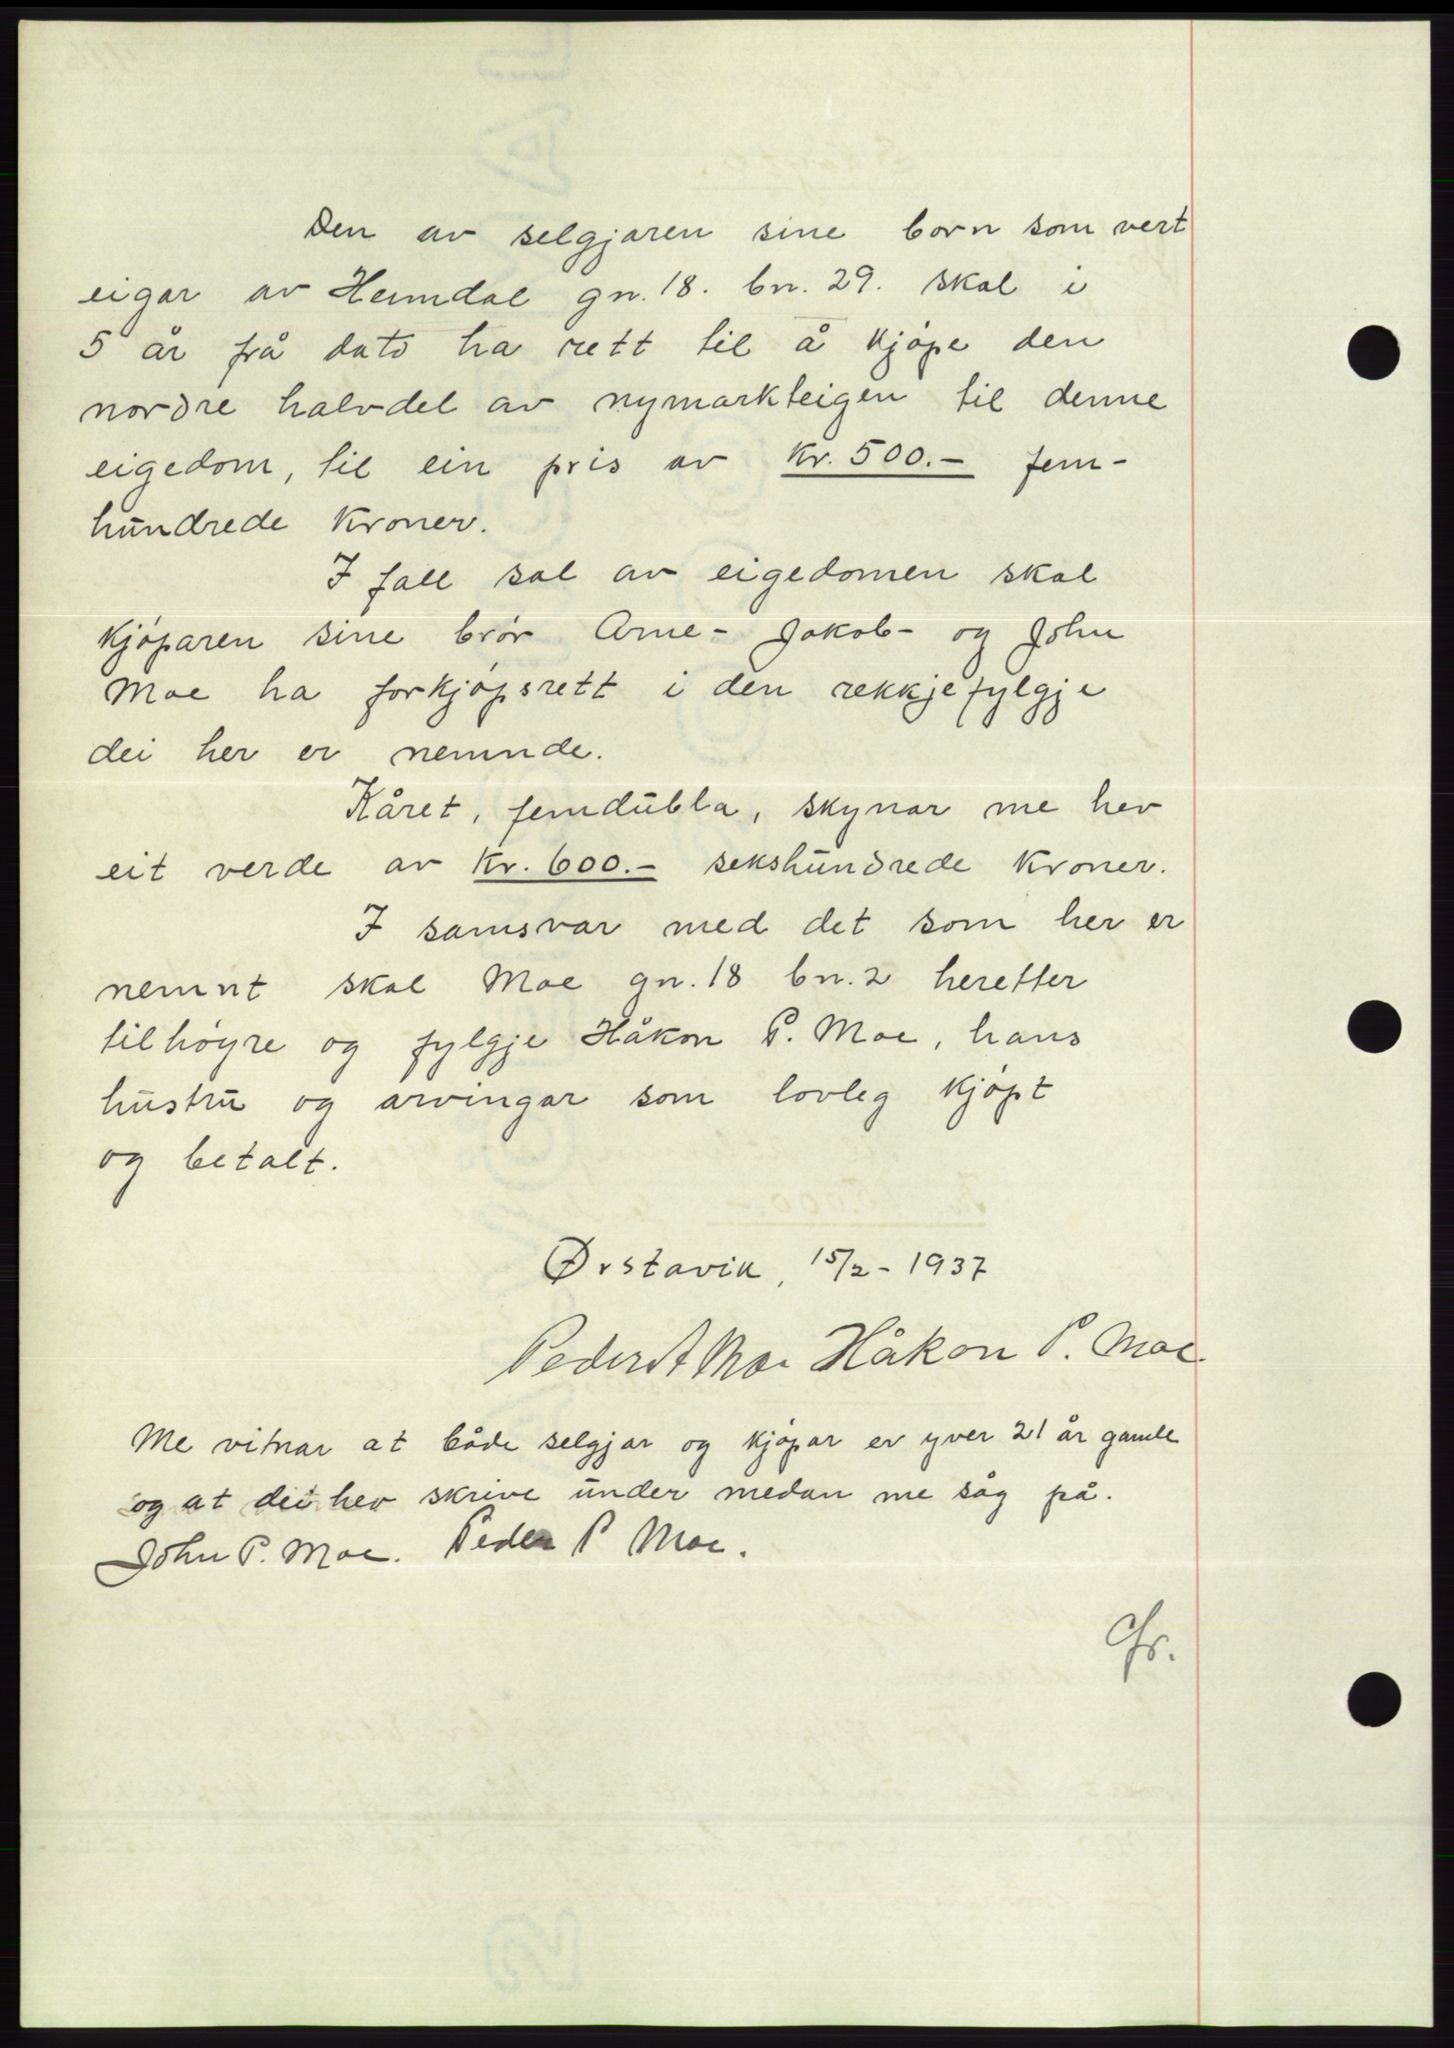 Den av selgjaren sine born som vert
eigar av Heimdal gn. 18. bn. 29. skal i
5 år frå dato ha rett til å kjøpe den
nordre halvdel av nymarkteigen til denne
eigedom, til ein pris av Kr. 500.- fem-
hundrede kroner.
I fall sal av eigedomen skal
kjøparen sine brør Arne- Jakob- og John
Moe ha forkjøpsrett i den rekkjefylgje
dei her er nemnde.
Kåret, femdubla, skynar me hev
eit verde av Kr. 600.- sekshundrede kroner.
I samsvar med det som her er
nemnt skal Moe gn. 18 bn. 2 heretter
tilhøyre og fylgje Håkon P. Moe, hans
hustru og arvingar som lovleg kjøpt
og betalt.
Ørstavik, 15/2 - 1937
Peder A Moe Håkon P. Moe.
Me vitnar at både selgjar og kjøpar er yver 21 år gamle
og at dei hev skrive under medan me såg på.
John P. Moe. Peder P Moe.